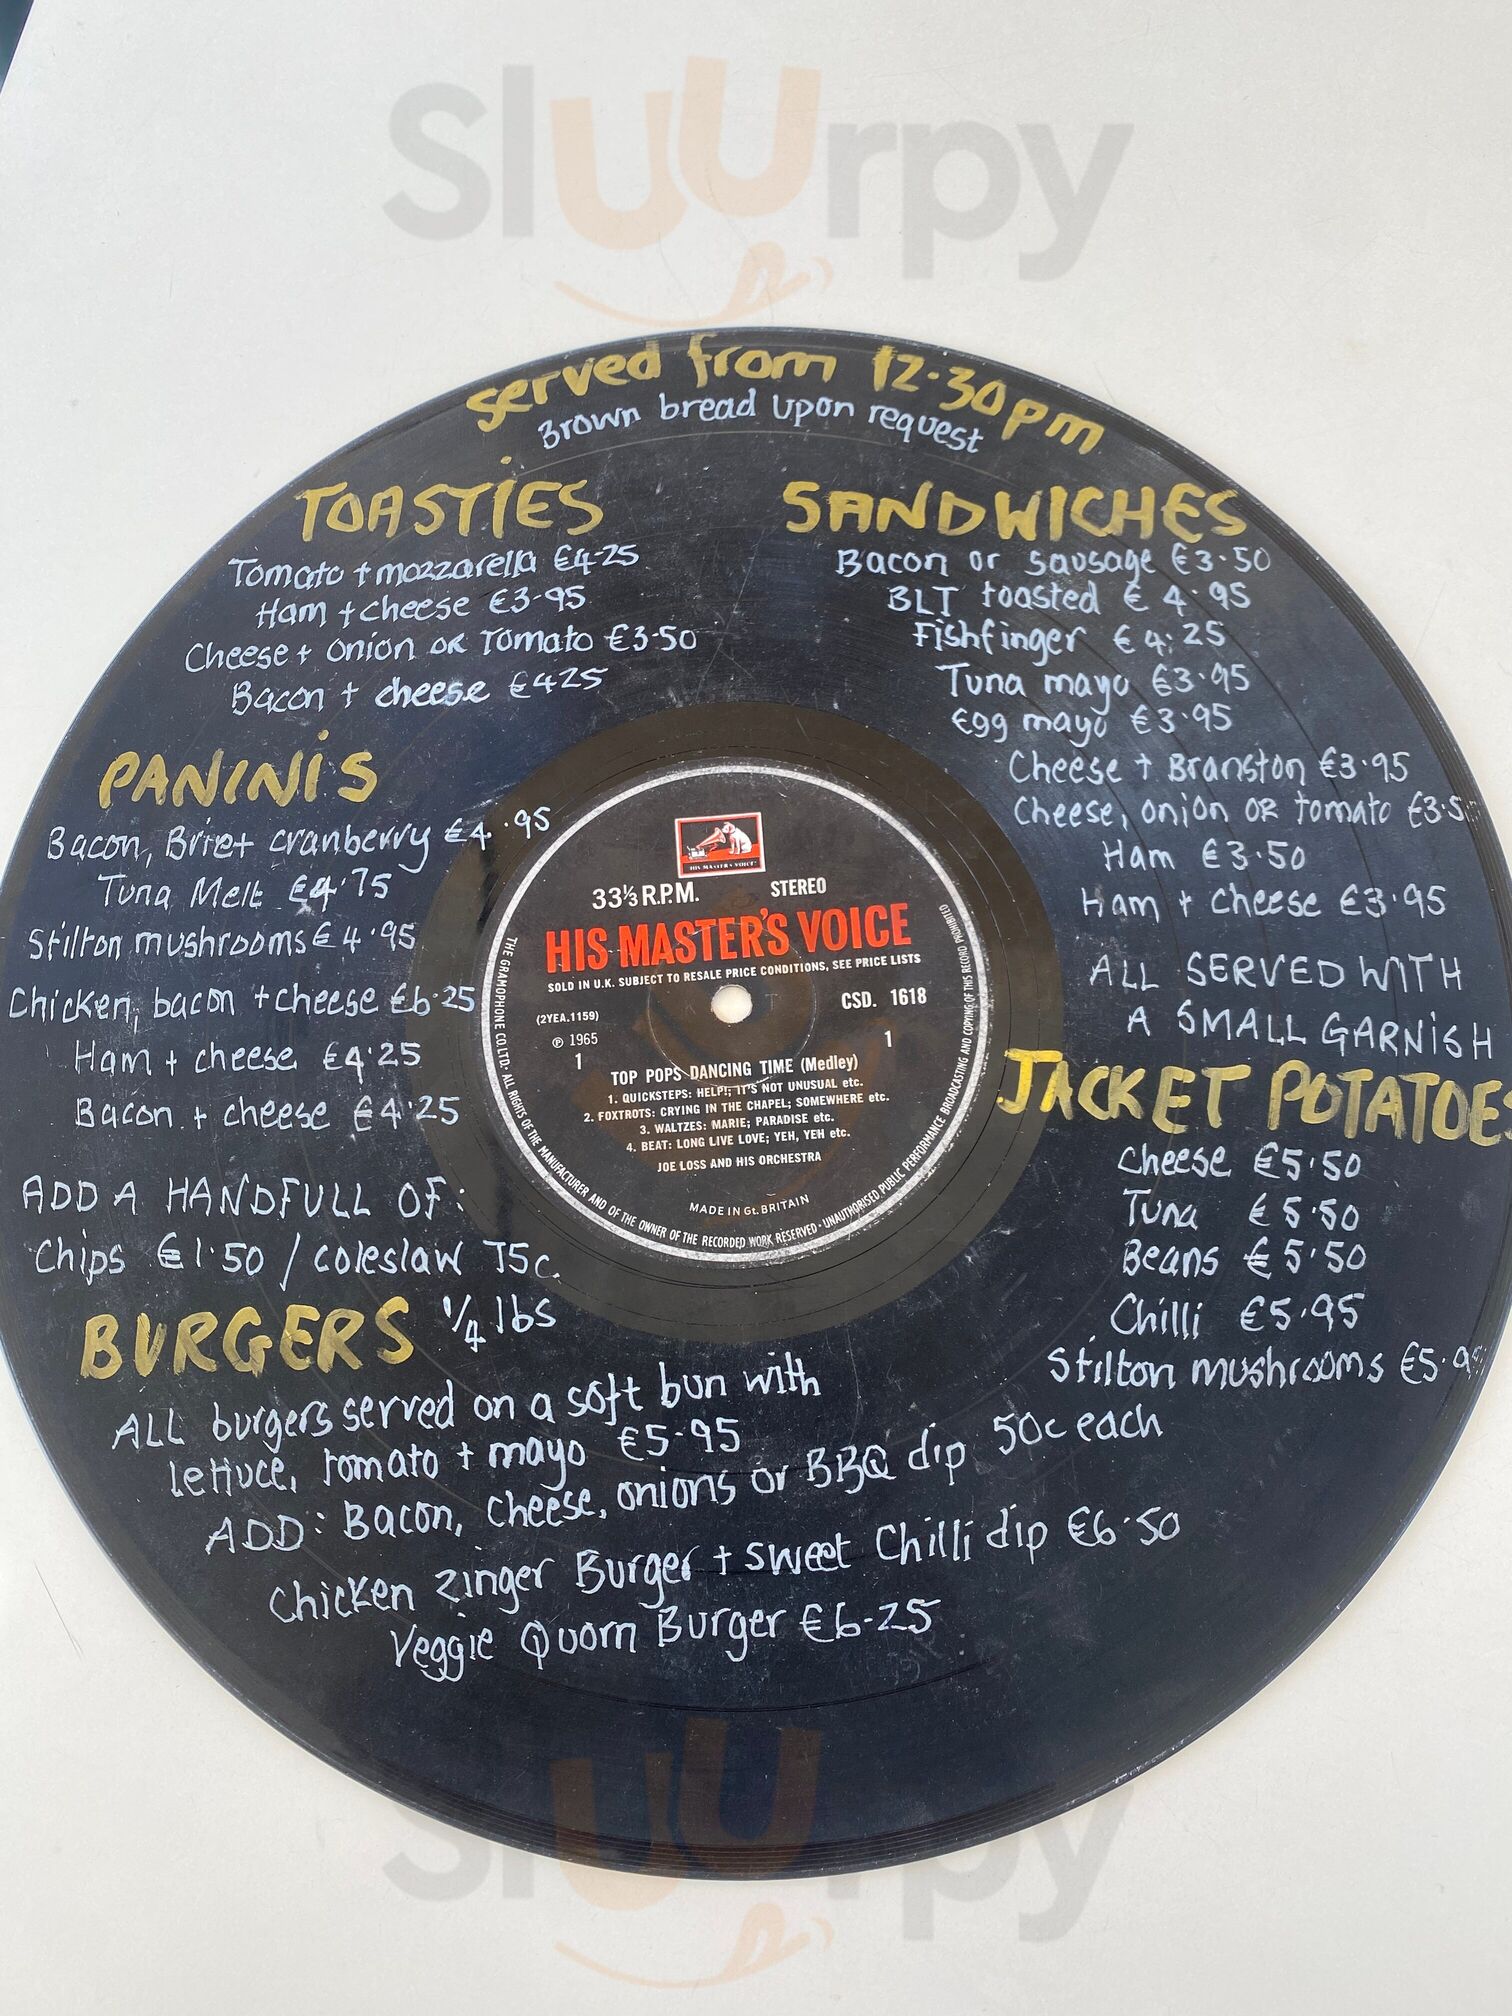 Sluurpy
served from 12.30pm
Brown bread upon request
TOASTIES
Tomato + mozzarella €4-25
Ham + cheese €3-95
Cheese + onion or Tomato €3-50
Bacon + cheese €425
PANINIS
Bacon, Brie+ cranberry €4.95
Tuna Melt €4.75
Stilton mushrooms €4.95
Chicken, bacon + cheese €6.25
Ham + cheese €4.25
Bacon + cheese €4.25
ADD A HANDFULL OF:
Chips €1.50 / coleslaw 75c.
SANDWICHES
Bacon or sausage €3.50
BLT toasted €4.95
Fishfinger €4.25
Tuna mayo €3.95
Egg mayo €3.95
Cheese + Branston €3.95
Cheese, onion or tomato
Ham €3.50
Ham + cheese €3.95
ALL SERVED WITH
A SMALL GARNISH
JACKET POTATOES
Cheese €5.50
Tuna €5.50
Beans €5.50
Chilli €5.95
Stilton mushrooms
BURGERS 1/4 lbs
ALL burgers served on a soft bun with
lettuce, tomato + mayo €5.95
ADD: Bacon, cheese, onions or BBQ dip 50c each
Chicken zinger Burger + sweet Chilli dip €6.50
Veggie Quorn Burger €6-25
HIS MASTER'S VOICE
33⅓ R.P.M. STEREO
HIS MASTER'S VOICE
SOLD IN U.K. SUBJECT TO RESALE PRICE CONDITIONS, SEE PRICE LISTS
(2YEA.1159) CSD. 1618
℗ 1965
1 1
TOP POPS DANCING TIME (Medley)
1. QUICKSTEPS: HELP!; IT'S NOT UNUSUAL etc.
2. FOXTROTS: CRYING IN THE CHAPEL; SOMEWHERE etc.
3. WALTZES: MARIE; PARADISE etc.
4. BEAT: LONG LIVE LOVE; YEH, YEH etc.
JOE LOSS AND HIS ORCHESTRA
MADE IN Gt. BRITAIN
THE GRAMOPHONE CO. LTD. ALL RIGHTS OF THE MANUFACTURER AND OF THE OWNER OF THE RECORDED WORK RESERVED · UNAUTHORISED PUBLIC PERFORMANCE BROADCASTING AND COPYING OF THIS RECORD PROHIBITED
Sluurpy